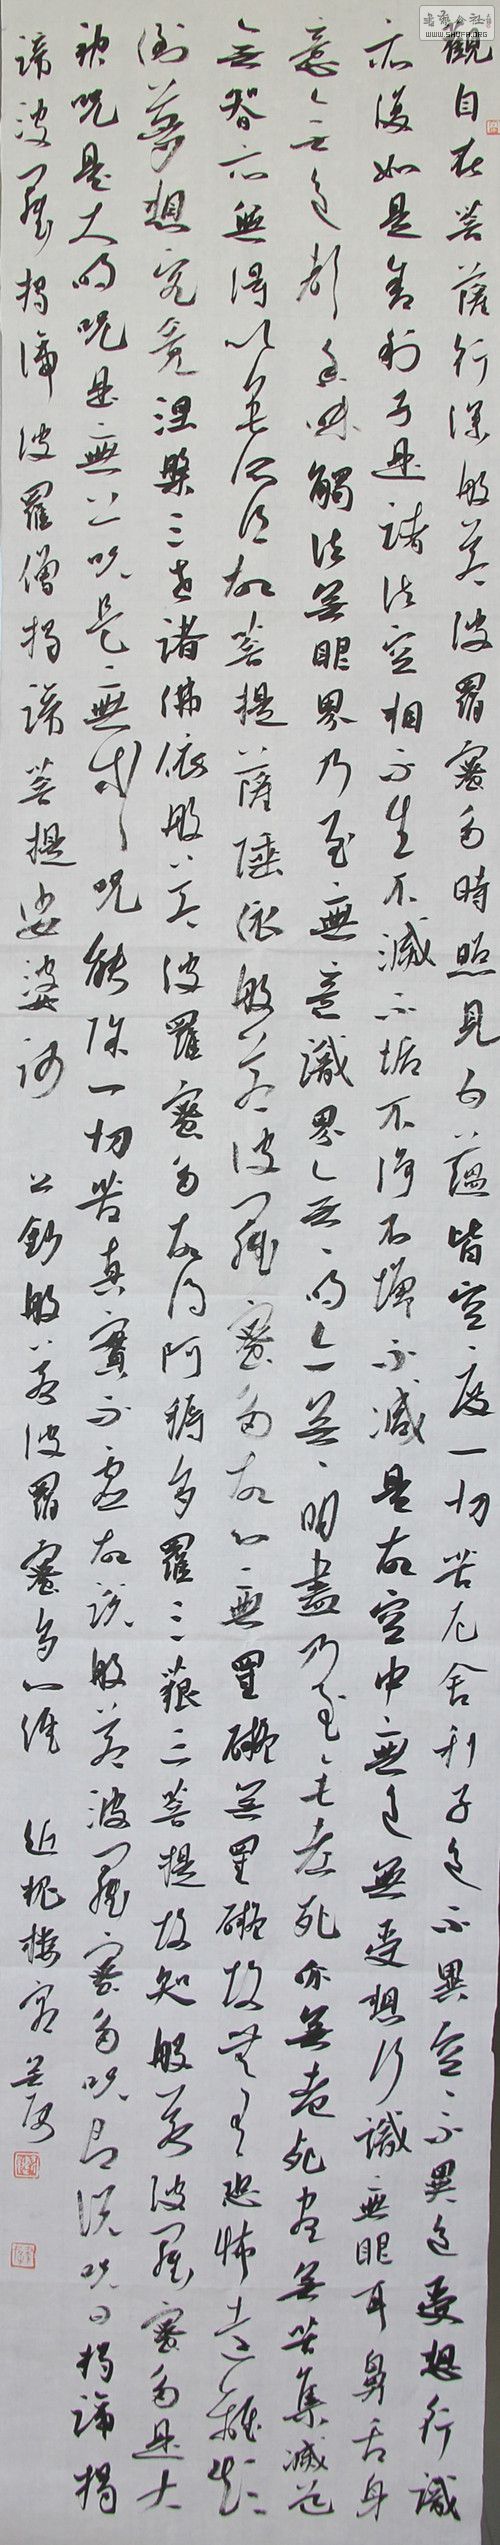 觀自在菩薩行深般若波羅蜜多時照見五蘊皆空度一切苦厄舍利子色不異空空不異色受想行識
亦復如是舍利子是諸法空相不生不滅不垢不淨不增不減是故空中無色無受想行識無眼耳鼻舌身
意無色聲香味觸法無眼界乃至無意識界無無明亦無無明盡乃至無老死亦無老死盡無苦集滅道
無智亦無得以無所得故菩提薩埵依般若波羅蜜多故心無罣礙無罣礙故無有恐怖遠離顛
倒夢想究竟涅槃三世諸佛依般若波羅蜜多故得阿耨多羅三藐三菩提故知般若波羅蜜多是大
神咒是大明咒是無上咒是無等等咒能除一切苦真實不虛故說般若波羅蜜多咒即說咒曰揭諦揭
諦波羅揭諦波羅僧揭諦菩提娑婆訶 鈔般若波羅蜜多心經 近槐樓
WWW.SHUFA.ORG